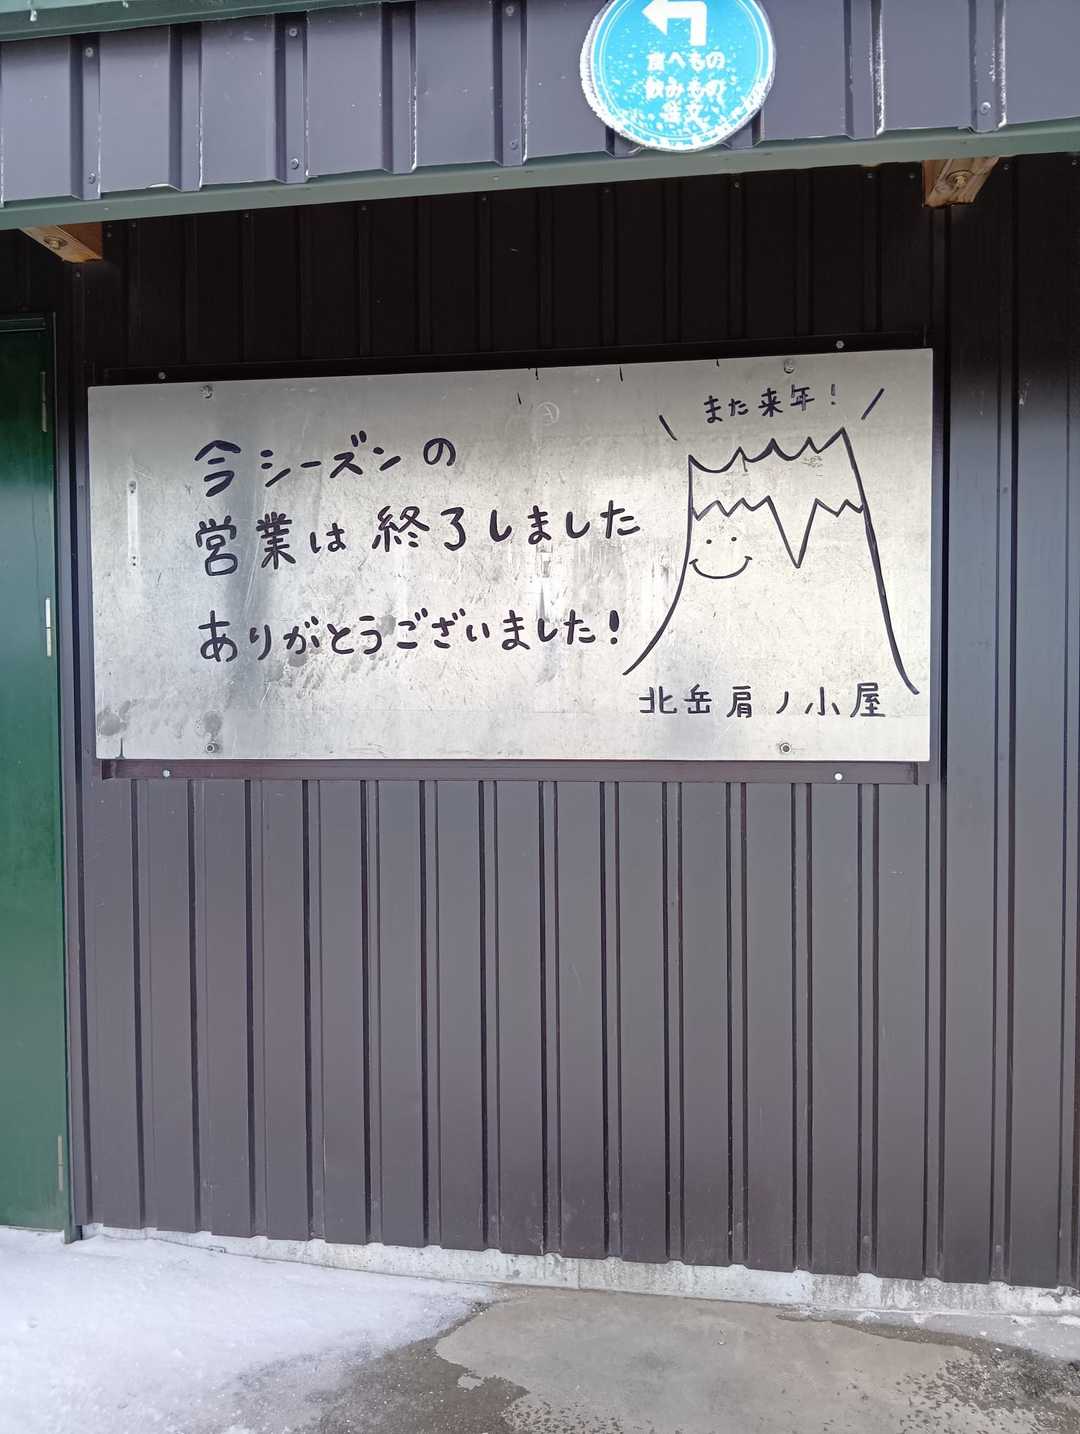 食べもの
飲みもの
注文
また来年！
今シーズンの
営業は終了しました
ありがとうございました！
北岳肩ノ小屋